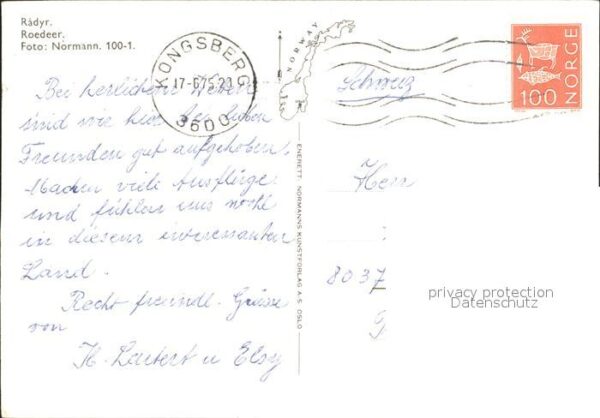 Rådyr.
Roedeer.
Foto: Normann. 100-1.
KONGSBERG
17-6 75-20
3600
NORWAY
NORGE
100
Schweiz
Bei herrlichem Wetter
sind wir hier bei lieben
Freunden gut aufgehoben.
Machen viele Ausflüge
und fühlen uns wohl
in diesem interessanten
Land.
Recht freundl. Grüsse
von
H. Leutert u Elsy
ENERETT NORMANNS KUNSTFORLAG A.S. OSLO
Herr
8037
privacy protection
Datenschutz